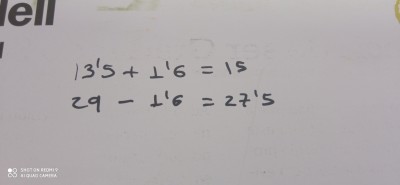 ell
13'5 + 1'9 = 15
29 - 1'9 = 27'5
SHOT ON REDMI 9
AI QUAD CAMERA